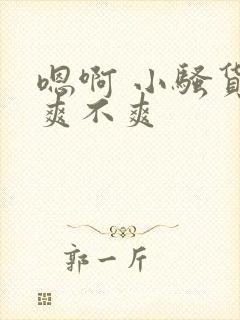 嗯啊 小骚货
爽不爽
郭一斤